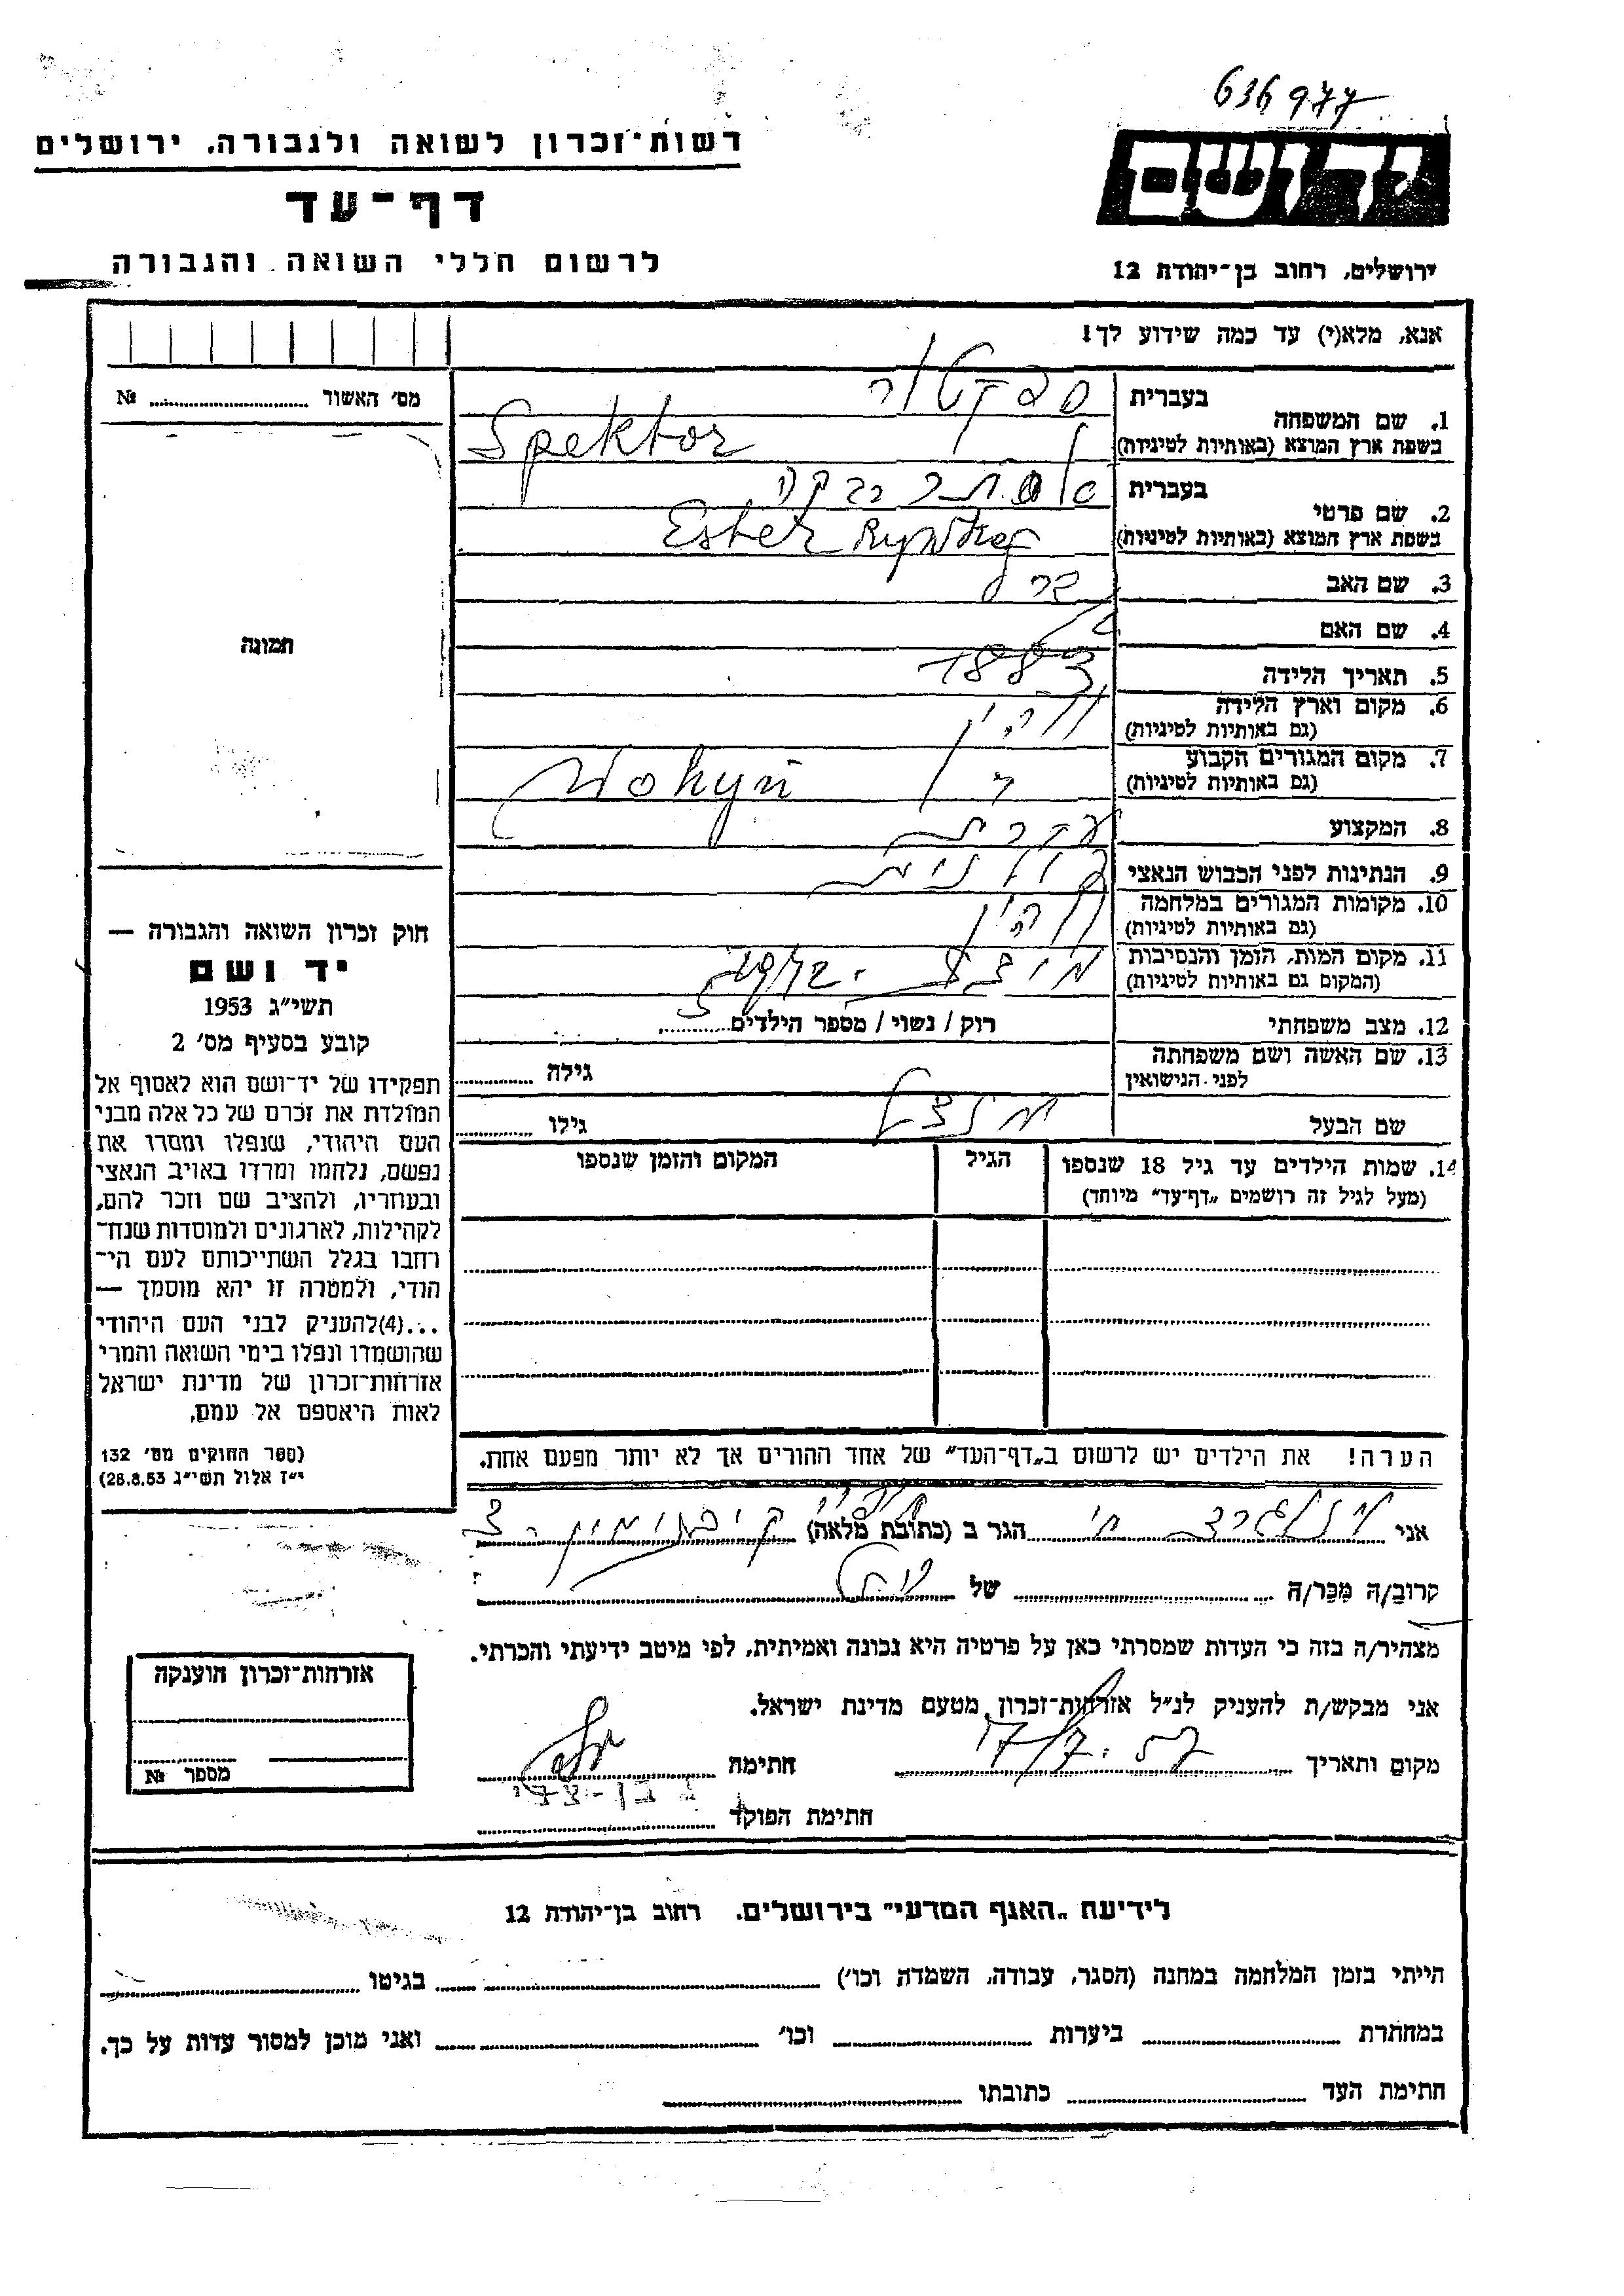 636977
רשות־זכרון לשואה ולגבורה, ירושלים
יד ושם
דף־עד
לרשום חללי השואה והגבורה
ירושלים, רחוב בן־יהודה 12
אנא, מלא(י) עד כמה שידוע לך!
מס׳ האשור № 
1. שם המשפחה בעברית ספקטור
בשפת ארץ המוצא (באותיות לטיניות) Spektor
2. שם פרטי בעברית אסתר רבקה
בשפת ארץ המוצא (באותיות לטיניות) Ester
3. שם האב
4. שם האם
5. תאריך הלידה 1883
6. מקום וארץ הלידה ווהין
(גם באותיות לטיניות)
7. מקום המגורים הקבוע Wohyń
(גם באותיות לטיניות)
8. המקצוע עקרית
9. הנתינות לפני הכבוש הנאצי פולנית
10. מקומות המגורים במלחמה ווהין
(גם באותיות לטיניות)
11. מקום המות, הזמן והנסיבות 1942
(המקום גם באותיות לטיניות)
12. מצב משפחתי רוק / נשוי / מספר הילדים 5
13. שם האשה ושם משפחתה גילה
לפני הנישואין
שם הבעל גילו
14. שמות הילדים עד גיל 18 שנספו הגיל המקום והזמן שנספו
(מעל לגיל זה רושמים „דף־עד״ מיוחד)
הערה! את הילדים יש לרשום ב„דף־העד״ של אחד ההורים אך לא יותר מפעם אחת.
תמונה
חוק זכרון השואה והגבורה —
יד ושם
תשי״ג 1953
קובע בסעיף מס׳ 2
תפקידו של יד־ושם הוא לאסוף אל
המולדת את זכרם של כל אלה מבני
העם היהודי, שנפלו ומסרו את
נפשם, נלחמו ומרדו באויב הנאצי
ובעוזריו, ולהציב שם וזכר להם,
לקהילות, לארגונים ולמוסדות שנח־
רחבו בגלל השתייכותם לעם הי־
הודי, ולמטרה זו יהא מוסמך —
...(4)להעניק לבני העם היהודי
שהושמדו ונפלו בימי השואה והמרי
אזרחות־זכרון של מדינת ישראל
לאות היאספם אל עמם.
(ספר החוקים מס׳ 132
י״ז אלול תשי״ג 28.8.53)
אני הגר ב (כתובת מלאה)
קרוב/ה מכר/ה של
מצהיר/ה בזה כי העדות שמסרתי כאן על פרטיה היא נכונה ואמיתית, לפי מיטב ידיעתי והכרתי.
אני מבקש/ת להעניק לנ״ל אזרחות־זכרון מטעם מדינת ישראל.
מקום ותאריך 17/7.57 חתימה
חתימת הפוקד בן־צבי
אזרחות־זכרון הוענקה
מספר №
לידיעת „האגף המדעי״ בירושלים, רחוב בן־יהודה 12
הייתי בזמן המלחמה במחנה (הסגר, עבודה, השמדה וכו׳) בגיטו
במחתרת ביערות וכו׳ ואני מוכן למסור עדות על כך.
חתימת העד כתובתו